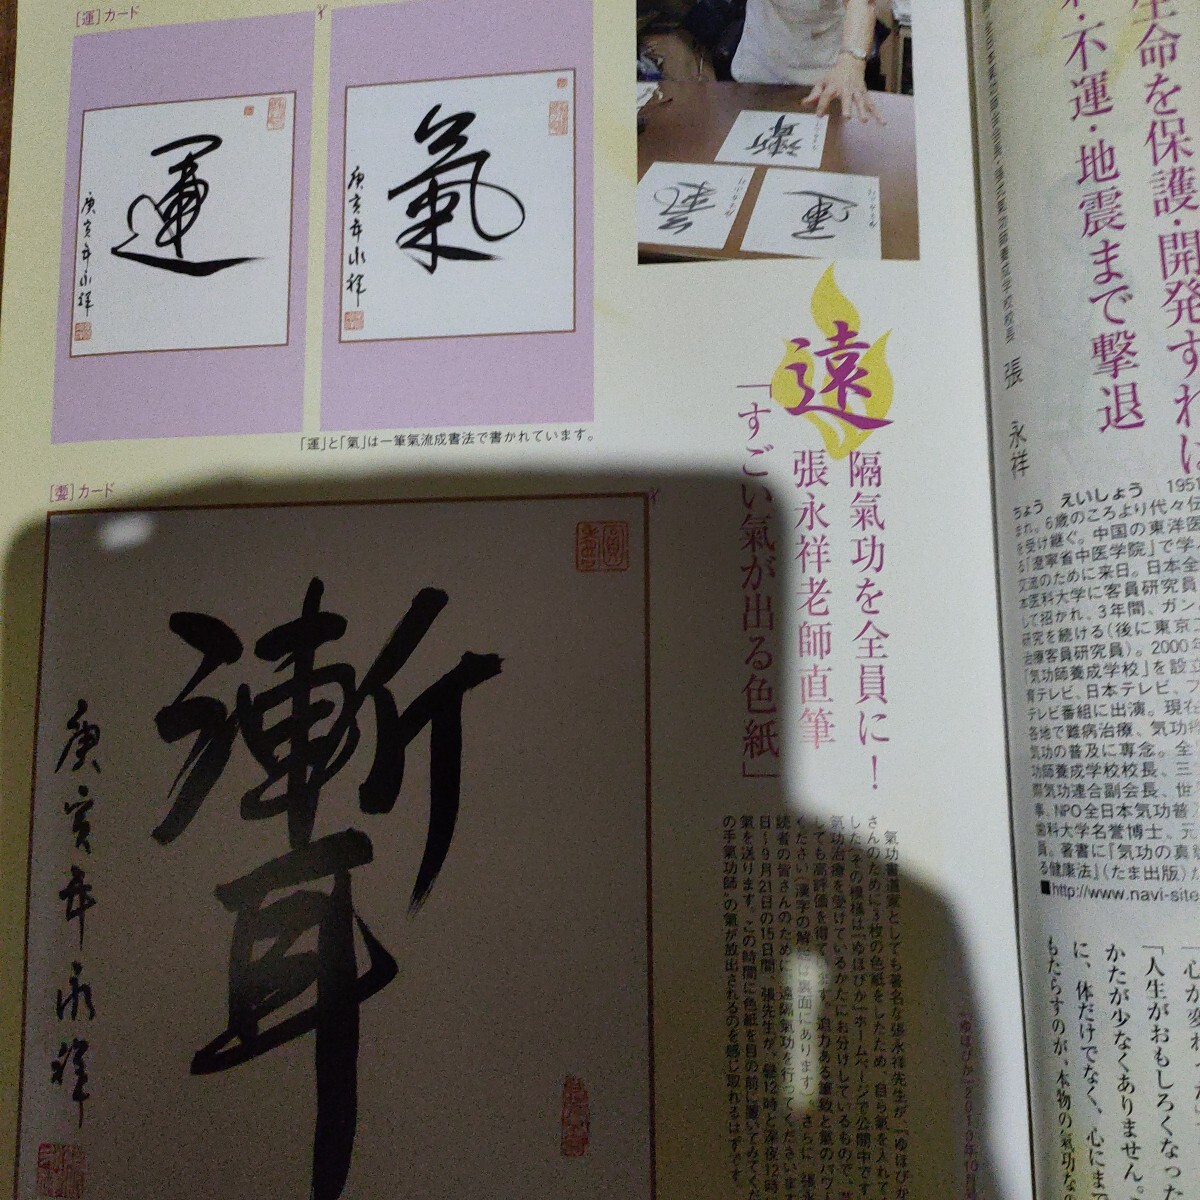 ［運］カード
運
庚寅年永祥
氣
庚寅年永祥
「運」と「氣」は一筆氣流成書法で書かれています。
［霊］カード
庚寅年永祥
生命を保護・開発すれば
不運・地震まで撃退
張 永祥
遠
隔氣功を全員に！
張永祥老師直筆
「すごい氣が出る色紙」
氣功書道家としても著名な張永祥先生が、『ゆほびか
さんのために3枚の色紙をしたため、自ら氣を入れて
した（その模様は『ゆほびか』ホームページで公開中です
気功治療を受けているかたにお分けしているもので、
しても高評価を得ています。迫力ある筆致と氣のパワー
ください（漢字の解説は裏面にあります）。さらに、張永
読者の皆さんのために、遠隔氣功を行ってくださいます
日～9月21日の15日間、張先生が、昼12時と深夜12時
氣を送ります。この時間に色紙を目の前に置いてみてくだ
の手氣功師”の氣が放出されるのを感じ取れるはずです
『ゆほびか』2010年10月
ちょう えいしょう 1951
まれ。6歳のころより代々伝
を受け継ぐ。中国の東洋医
る「遼寧省中医学院」で学
交流のために来日。日本全
本医科大学に客員研究員
して招かれ、3年間、ガン
研究を続ける（後に東京
治療客員研究員）。2000年
「気功師養成学校」を設立
育テレビ、日本テレビ、フ
テレビ番組に出演。現在
各地で難病治療、気功
気功の普及に専念。全
功師養成学校校長、三
際気功連合副会長、世
事、NPO全日本気功普
歯科大学名誉博士、元
員。著書に『気功の真
る健康法』（たま出版）
■http://www.navi-site
「心が変わ
「人生がおもしろくなった
かたが少なくありません。
に、体だけでなく、心にま
もたらすのが、本物の氣功な